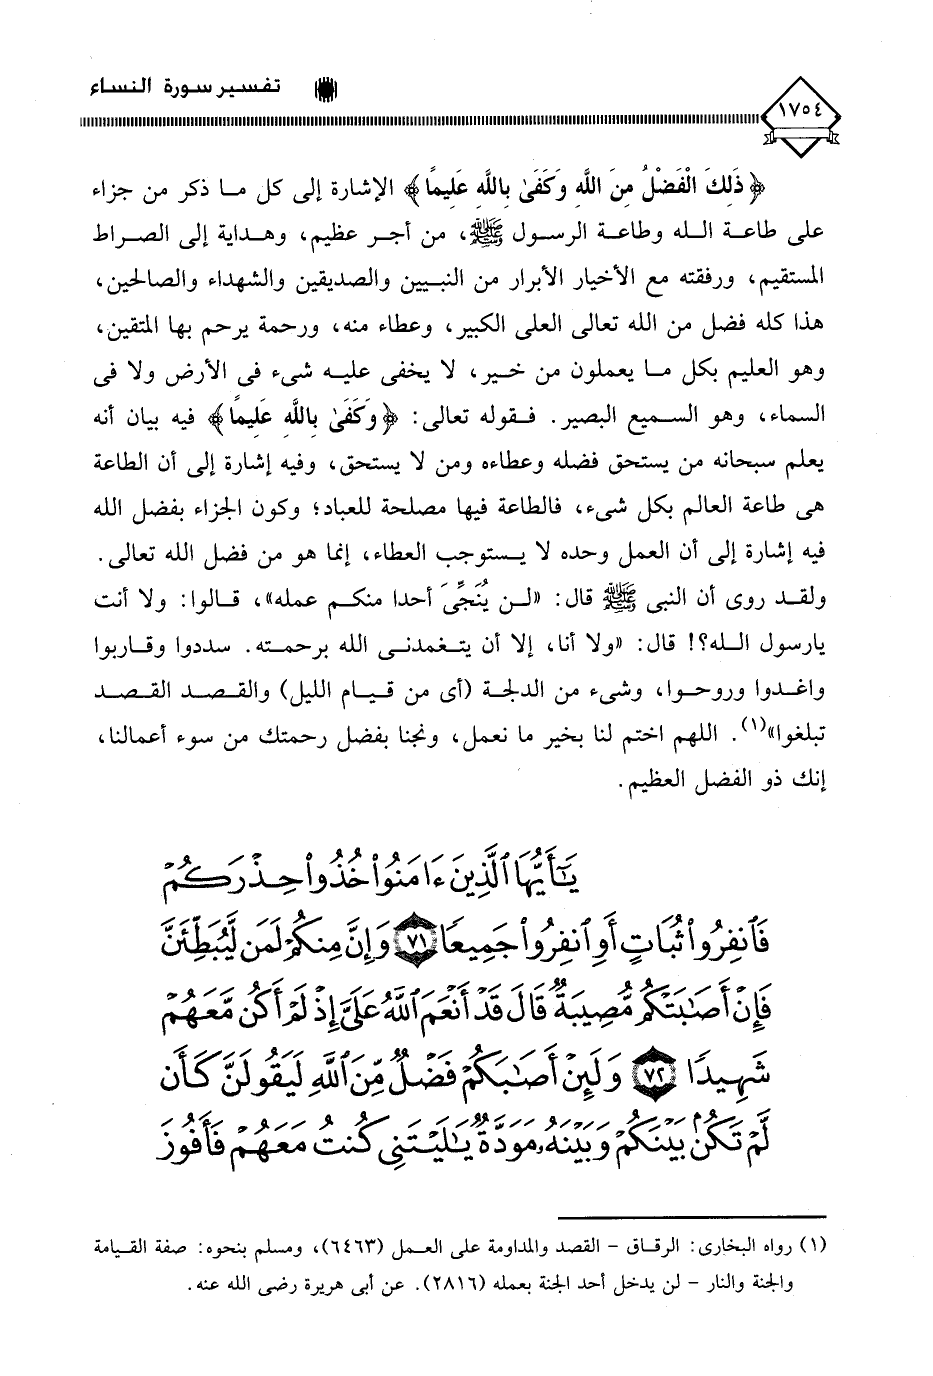 ١٧٥٤
تفسير سورة النساء
﴿ذَلِكَ الْفَضْلُ مِنَ اللَّهِ وَكَفَىٰ بِاللَّهِ عَلِيمًا﴾ الإشارة إلى كل ما ذكر من جزاء
على طاعة الله وطاعة الرسول ﷺ، من أجر عظيم، وهداية إلى الصراط
المستقيم، ورفقته مع الأخيار الأبرار من النبيين والصديقين والشهداء والصالحين،
هذا كله فضل من الله تعالى العلى الكبير، وعطاء منه، ورحمة يرحم بها المتقين،
وهو العليم بكل ما يعملون من خير، لا يخفى عليه شىء فى الأرض ولا فى
السماء، وهو السميع البصير. فقوله تعالى: ﴿وَكَفَىٰ بِاللَّهِ عَلِيمًا﴾ فيه بيان أنه
يعلم سبحانه من يستحق فضله وعطاءه ومن لا يستحق، وفيه إشارة إلى أن الطاعة
هى طاعة العالم بكل شىء، فالطاعة فيها مصلحة للعباد؛ وكون الجزاء بفضل الله
فيه إشارة إلى أن العمل وحده لا يستوجب العطاء، إنما هو من فضل الله تعالى.
ولقد روى أن النبى ﷺ قال: «لن يُنَجِّىَ أحدا منكم عمله»، قالوا: ولا أنت
يارسول الله؟! قال: «ولا أنا، إلا أن يتغمدنى الله برحمته. سددوا وقاربوا
واغدوا وروحوا، وشىء من الدلجة (أى من قيام الليل) والقصد القصد
تبلغوا»(١). اللهم اختم لنا بخير ما نعمل، ونجنا بفضل رحمتك من سوء أعمالنا،
إنك ذو الفضل العظيم.
يَٰٓأَيُّهَا ٱلَّذِينَ ءَامَنُواْ خُذُواْ حِذْرَكُمْ
فَٱنفِرُواْ ثُبَاتٍ أَوِ ٱنفِرُواْ جَمِيعًا ٧١ وَإِنَّ مِنكُمْ لَمَن لَّيُبَطِّئَنَّ
فَإِنْ أَصَٰبَتْكُم مُّصِيبَةٌ قَالَ قَدْ أَنْعَمَ ٱللَّهُ عَلَىَّ إِذْ لَمْ أَكُن مَّعَهُمْ
شَهِيدًا ٧٢ وَلَئِنْ أَصَٰبَكُمْ فَضْلٌ مِّنَ ٱللَّهِ لَيَقُولَنَّ كَأَن
لَّمْ تَكُنۢ بَيْنَكُمْ وَبَيْنَهُۥ مَوَدَّةٌ يَٰلَيْتَنِى كُنتُ مَعَهُمْ فَأَفُوزَ
(١) رواه البخارى: الرقاق - القصد والمداومة على العمل (٦٤٦٣)، ومسلم بنحوه: صفة القيامة
والجنة والنار - لن يدخل أحد الجنة بعمله (٢٨١٦). عن أبى هريرة رضى الله عنه.